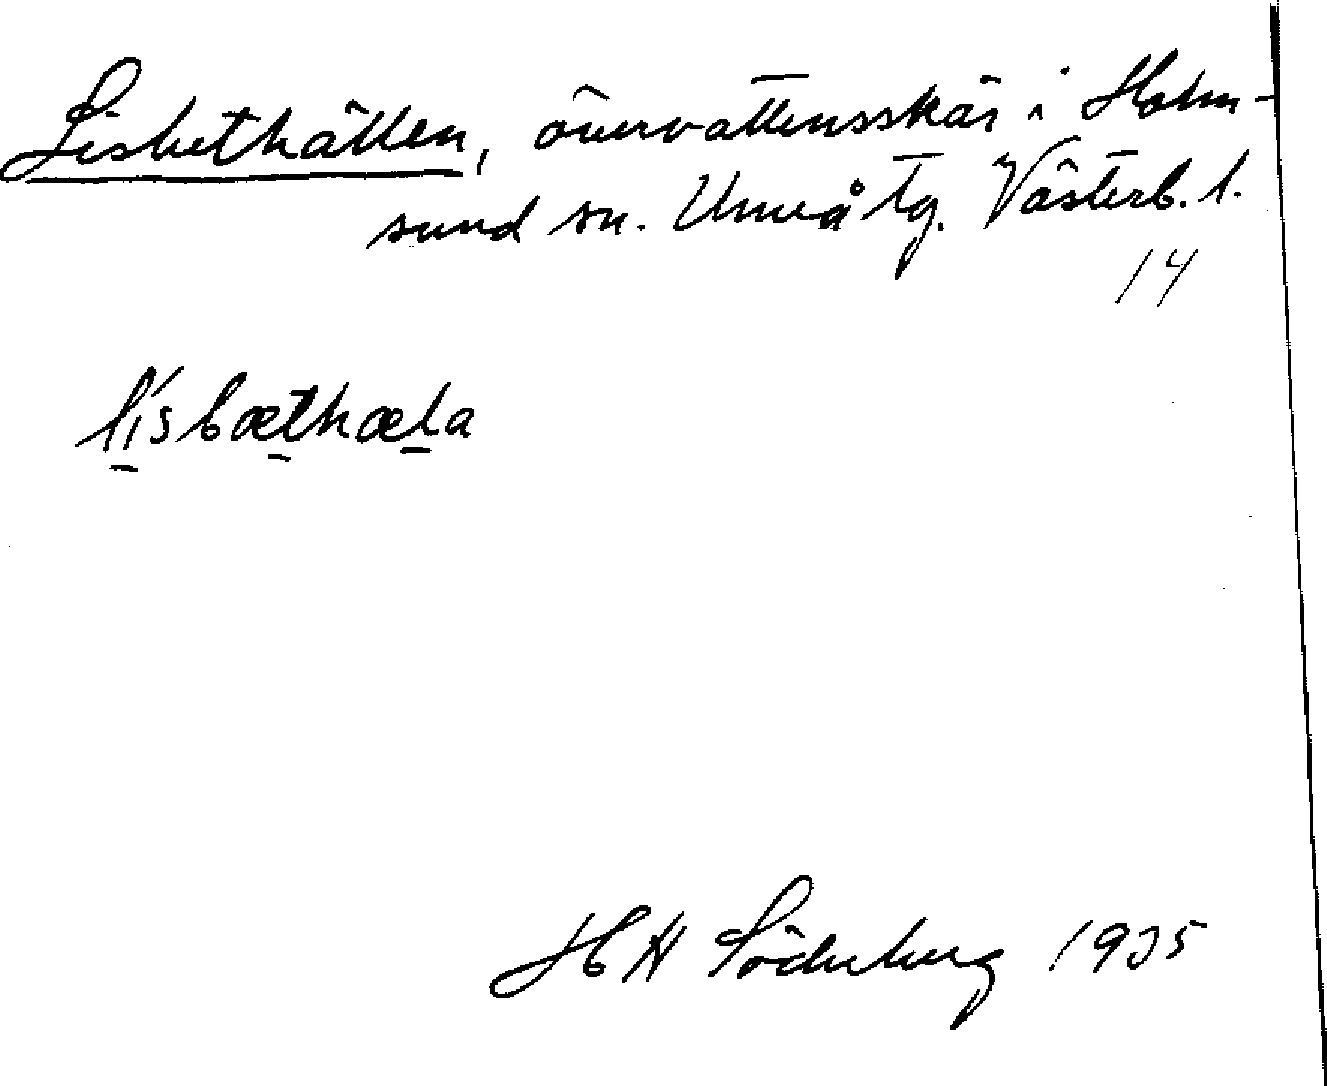 Lisbethällen, övervattensskär i Holm-
sund sn. Umeå tg. Västerb. l.
14
lisbæthæla
H A Söderberg 1935